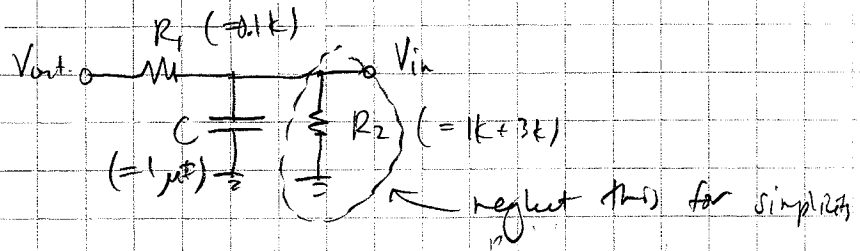 R1 (=0.1k)
Vout
Vin
C
R2 (=1k+3k)
(=1μF)
neglect this for simplicity